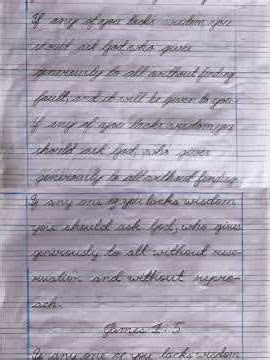 If any of you lacks wisdom, you
should ask God, who gives
generously to all without finding
fault, and it will be given to you.
If any of you lacks wisdom, you
should ask God, who gives
generously to all without finding
If any one of you lacks wisdom
you should ask God, who gives
generously to all without rese-
rvation and without repro-
ach.
James 1:5
If any one of you lacks wisdom